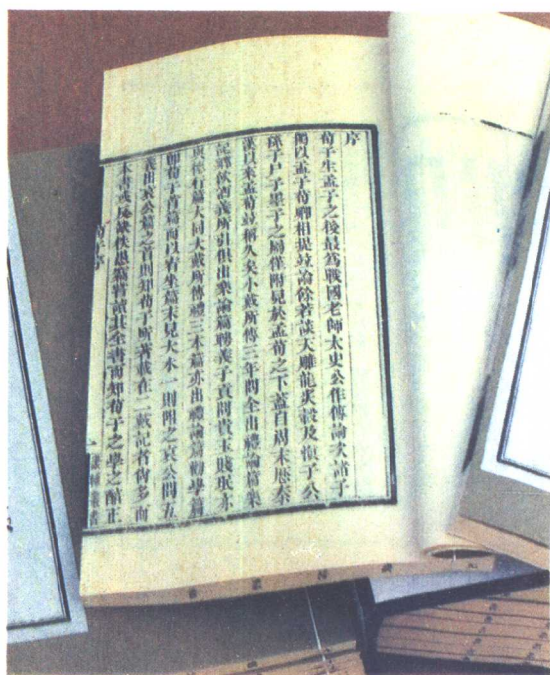 序
荀子生孟子之後最爲戰國老師太史公作傳論次諸子
獨以孟子荀卿相提竝論餘若談天雕龍炙轂及愼子公
孫子尸子墨子之屬僅附見於孟荀之下蓋自周末歷秦
漢以來孟荀竝稱久矣小戴所傳三年問全出禮論篇樂
記鄉飲酒義所引俱出樂論篇聘義子貢問貴玉賤珉亦
與德行篇大同大戴所傳禮三本篇亦出禮論篇勸學篇
卽荀子首篇而以宥坐篇末見大水一則附之哀公問五
義出哀公篇之首則知荀子所著載在二戴記者尚多而
本書或反缺佚愚竊嘗讀其全書而知荀子之學之醇正
荀子序
一
畿輔叢書